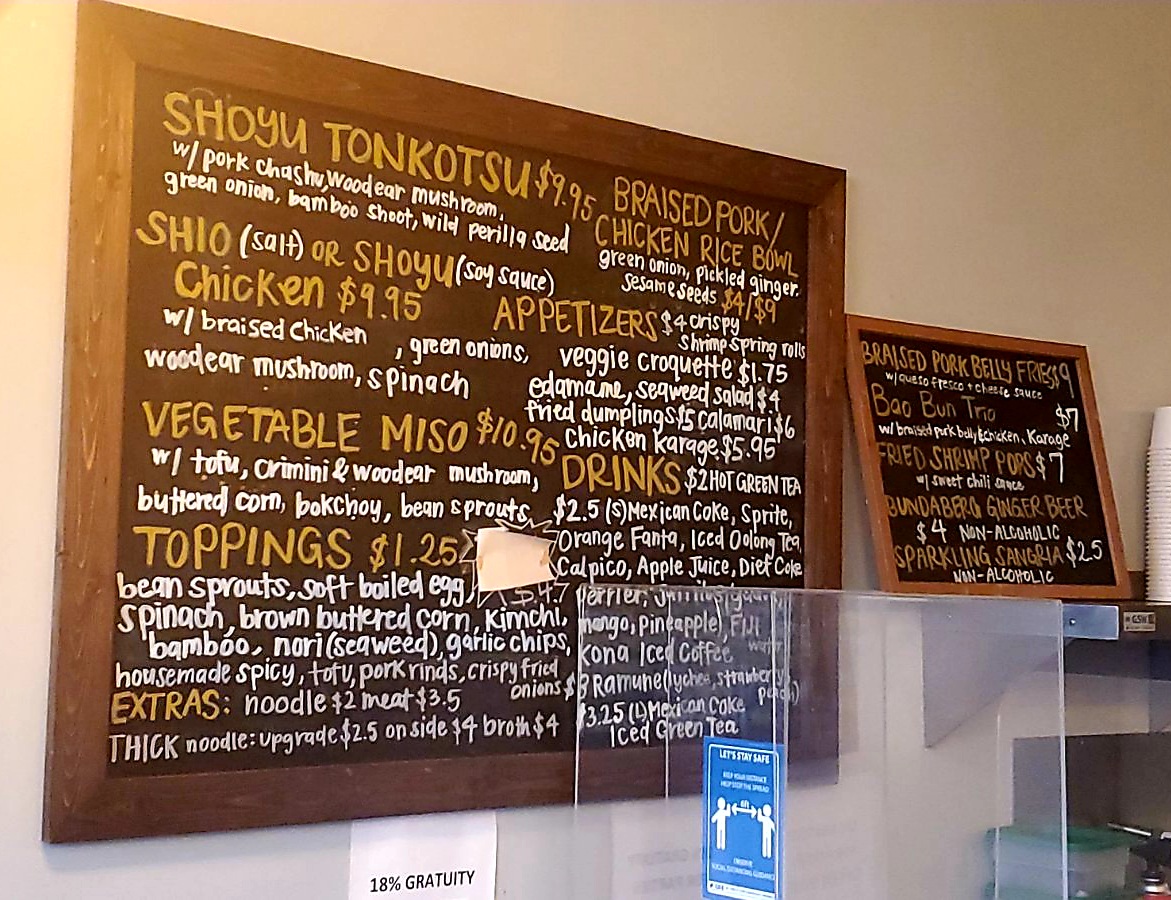 SHOYU TONKOTSU $9.95
w/ pork chashu, woodear mushroom,
green onion, bamboo shoot, wild perilla seed
SHIO (salt) OR SHOYU (soy sauce)
Chicken $9.95
w/ braised chicken , green onions,
woodear mushroom, spinach
VEGETABLE MISO $10.95
w/ tofu, crimini & woodear mushroom,
buttered corn, bokchoy, bean sprouts
TOPPINGS $1.25
bean sprouts, soft boiled egg,
spinach, brown buttered corn, kimchi,
bamboo, nori (seaweed), garlic chips,
housemade spicy, tofu, pork rinds, crispy fried
onions
EXTRAS: noodle $2 meat $3.5
THICK noodle: upgrade $2.5 on side $4 broth $4
BRAISED PORK/
CHICKEN RICE BOWL
green onion, pickled ginger,
sesame seeds $4/$9
APPETIZERS $4 crispy
shrimp spring rolls
veggie croquette $1.75
edamame, seaweed salad $4
fried dumplings $5 calamari $6
chicken karage $5.95
DRINKS $2 HOT GREEN TEA
$2.5 (S) Mexican Coke, Sprite,
Orange Fanta, Iced Oolong Tea,
Calpico, Apple Juice, Diet Coke
Perrier,
mango, pineapple), FIJI
water
Kona Iced Coffee
$3 Ramune (lychee, strawberry,
peach)
$3.25 (L) Mexican Coke
Iced Green Tea
BRAISED PORK BELLY FRIES $9
w/ queso fresco + cheese sauce
Bao Bun Trio $7
w/ braised pork belly & chicken, Karage
FRIED SHRIMP POPS $7
w/ sweet chili sauce
BUNDABERG GINGER BEER
$4 NON-ALCOHOLIC
SPARKLING SANGRIA $2.5
NON-ALCOHOLIC
18% GRATUITY
LET'S STAY SAFE
KEEP YOUR DISTANCE
HELP STOP THE SPREAD
6ft
OBSERVE
SOCIAL DISTANCING GUIDANCE